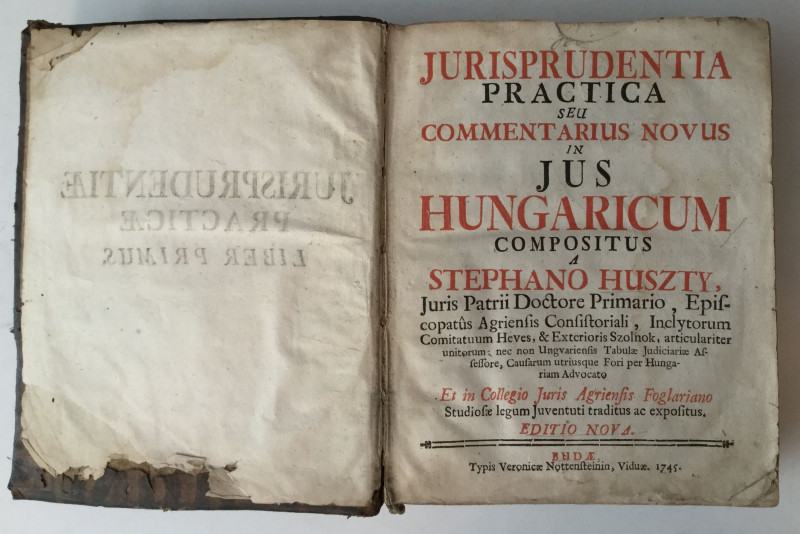 JURISPRUDENTIÆ
PRACTICÆ
LIBER PRIMUS
JURISPRUDENTIA
PRACTICA
SEU
COMMENTARIUS NOVUS
IN
JUS
HUNGARICUM
COMPOSITUS
A
STEPHANO HUSZTY,
Juris Patrii Doctore Primario, Epiſ-
copatûs Agrienſis Conſiſtoriali, Inclytorum
Comitatuum Heves, & Exterioris Szolnok, articulariter
unitorum; nec non Ungvarienſis Tabulæ Judiciariæ Aſ-
ſeſſore, Cauſarum utriusque Fori per Hunga-
riam Advocato
Et in Collegio Juris Agrienſis Foglariano
Studioſæ legum Juventuti traditus ac expoſitus.
EDITIO NOVA.
BUDÆ
Typis Veronicæ Nottenſteinin, Viduæ. 1745.